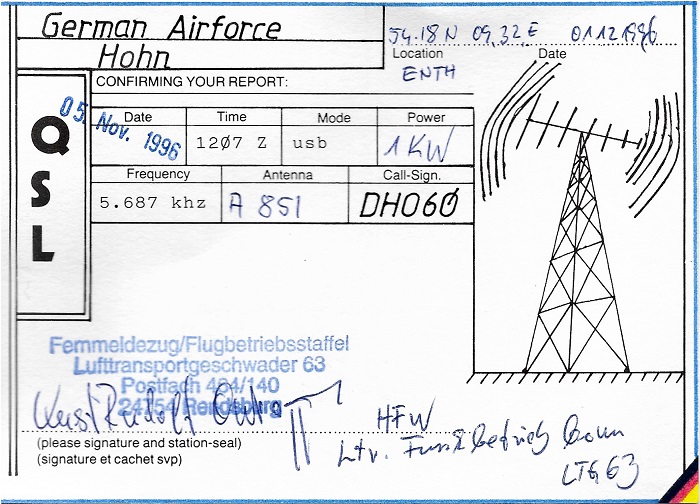 German Airforce
Hohn
54.18 N 09.32 E 01.12 1996
Location Date
ENTH
CONFIRMING YOUR REPORT:
QSL
Date Time Mode Power
05. Nov. 1996 12Ø7 Z usb 1 KW
Frequency Antenna Call-Sign.
5.687 khz A 851 DHO6Ø
Fernmeldezug/Flugbetriebsstaffel
Lufttransportgeschwader 63
Postfach 464/140
24754 Rendsburg
HFW
Ltr. Funkbetrieb
LTG 63
(please signature and station-seal)
(signature et cachet svp)